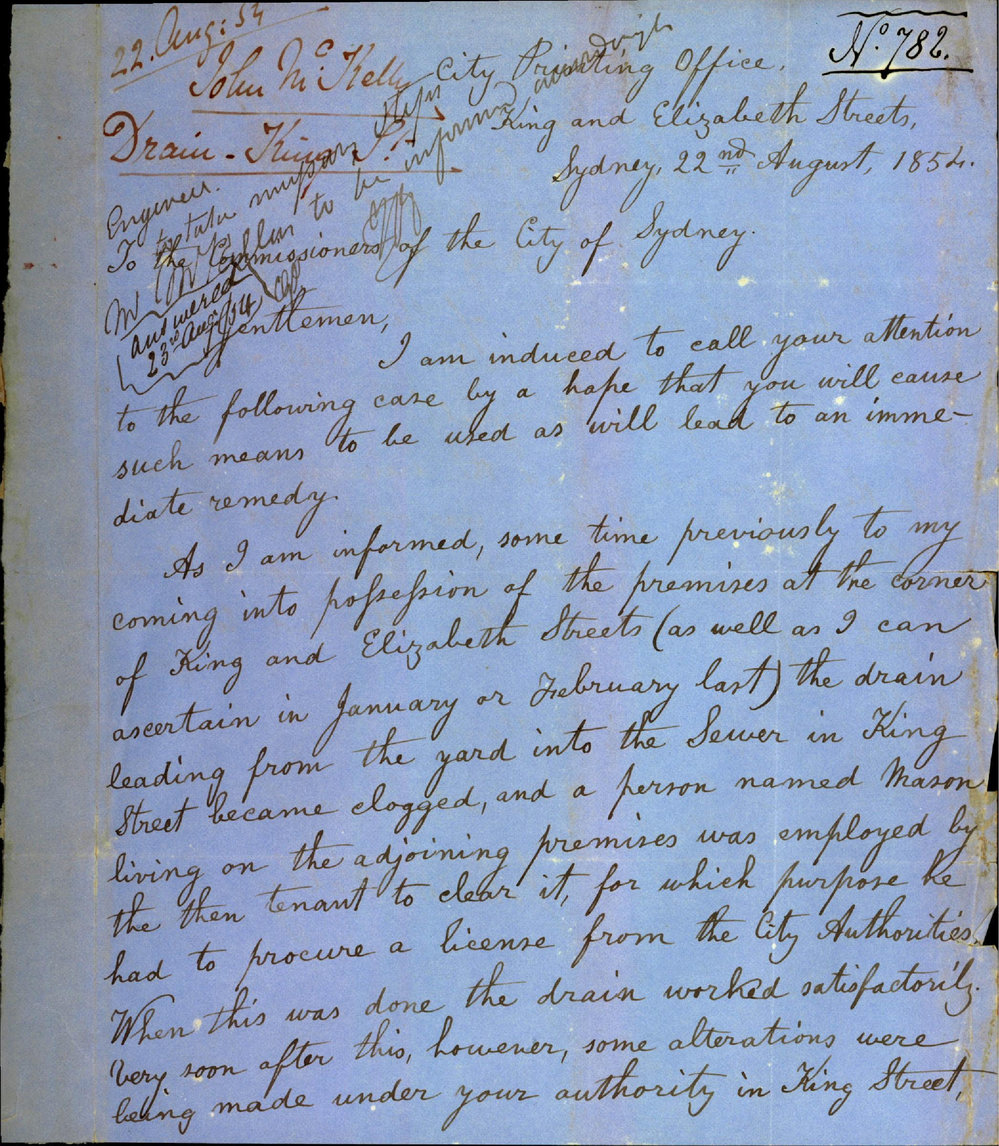 22. Aug: 54
John McKelly
Drain - King St.
No. 782.
City Printing Office,
King and Elizabeth Streets,
Sydney, 22nd August, 1854.
Engineer.
to take
to be informed accordingly
Answered
23rd Augt /54
To the Commissioners of the City of Sydney.
Gentlemen,
I am induced to call your attention
to the following case by a hope that you will cause
such means to be used as will lead to an imme-
diate remedy.
As I am informed, some time previously to my
coming into possession of the premises at the corner
of King and Elizabeth Streets (as well as I can
ascertain in January or February last) the drain
leading from the yard into the Sewer in King
Street became clogged, and a person named Mason
living on the adjoining premises was employed by
the then tenant to clear it, for which purpose he
had to procure a license from the City Authorities.
When this was done the drain worked satisfactorily.
Very soon after this, however, some alterations were
being made under your authority in King Street,